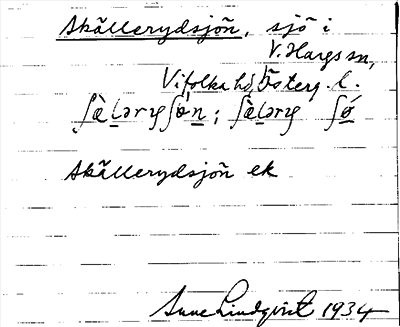 Skällerydsjön, sjö i
V. Hargs sn,
Vifolka hd Österg. l.
ʃæ̀ləryʃǿn; ʃæ̀ləry ʃǿ
Skällerydsjön ek
Sune Lindqvist 1934